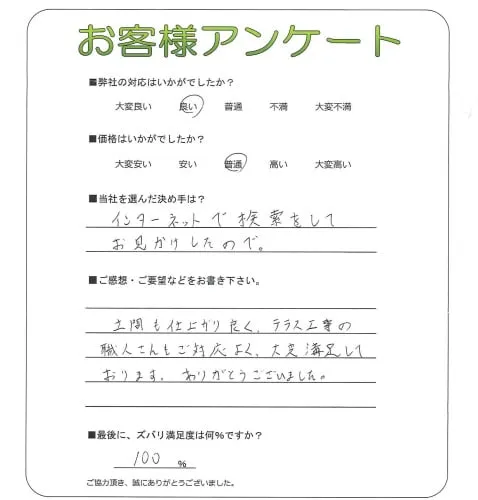 お客様アンケート
■弊社の対応はいかがでしたか？
大変良い 良い 普通 不満 大変不満
■価格はいかがでしたか？
大変安い 安い 普通 高い 大変高い
■当社を選んだ決め手は？
インターネットで検索をして
お見かけしたので。
■ご感想・ご要望などをお書き下さい。
土間も仕上がり良く、テラス工事の
職人さんもご対応よく、大変満足して
おります。ありがとうございました。
■最後に、ズバリ満足度は何%ですか？
100 %
ご協力頂き、誠にありがとうございました。